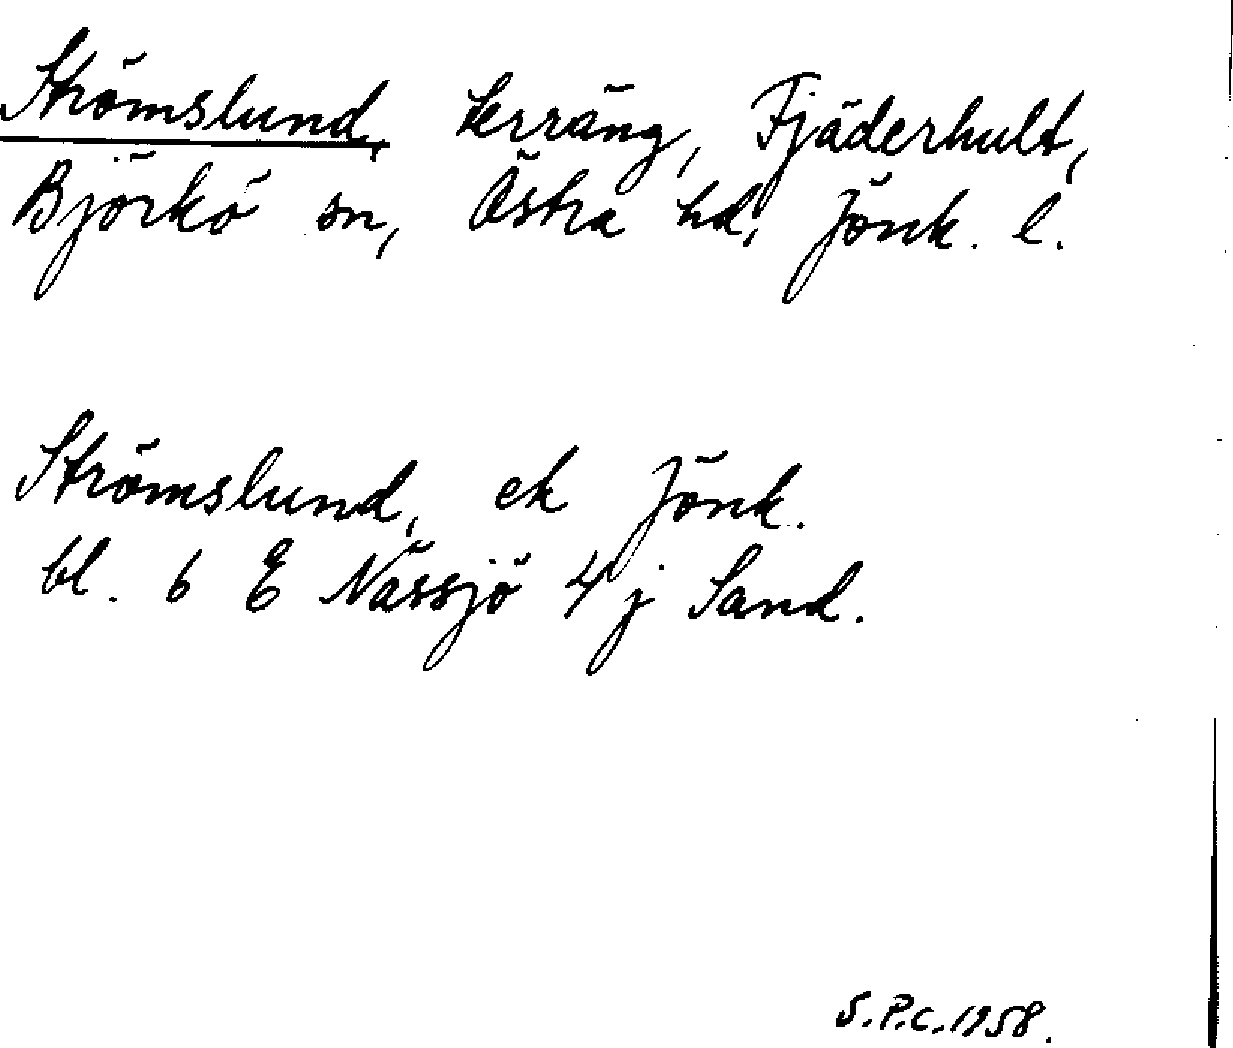 Strömslund, terräng, Fjäderhult,
Björkö sn, Östra hd, Jönk. l.
Strömslund, ek Jönk.
bl. 6 E Nässjö 4 j Sand.
S.P.C. 1958.